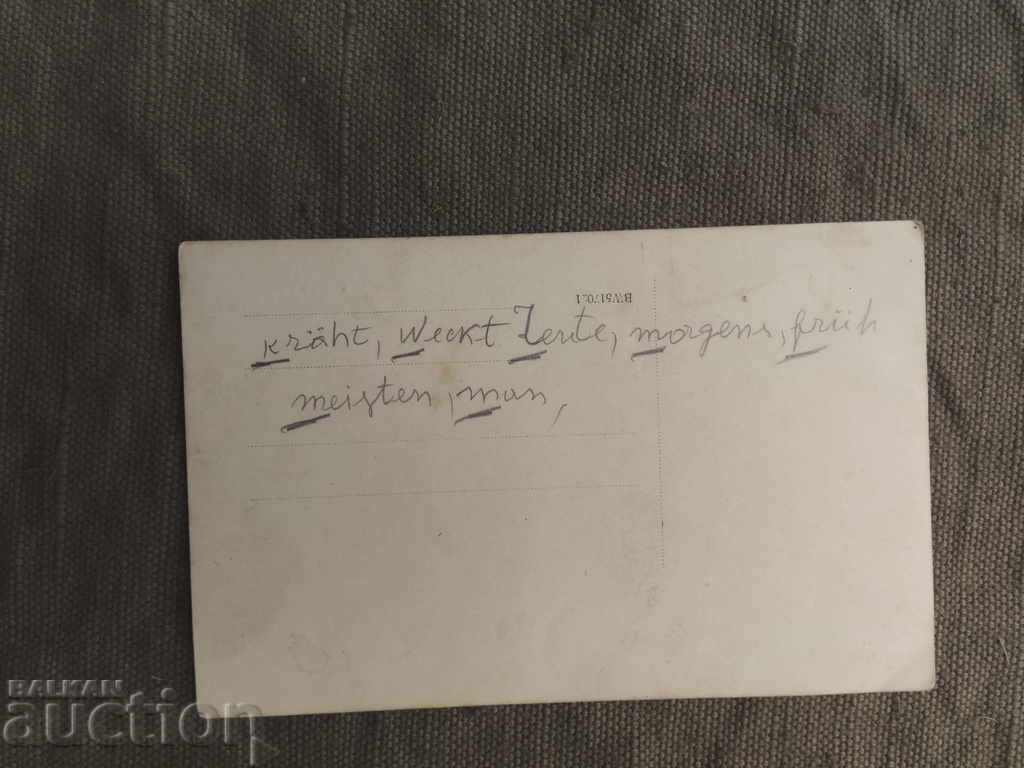 BW5170-1
kräht, weckt Leute, morgens, früh
meisten, man,
BALKAN
auction